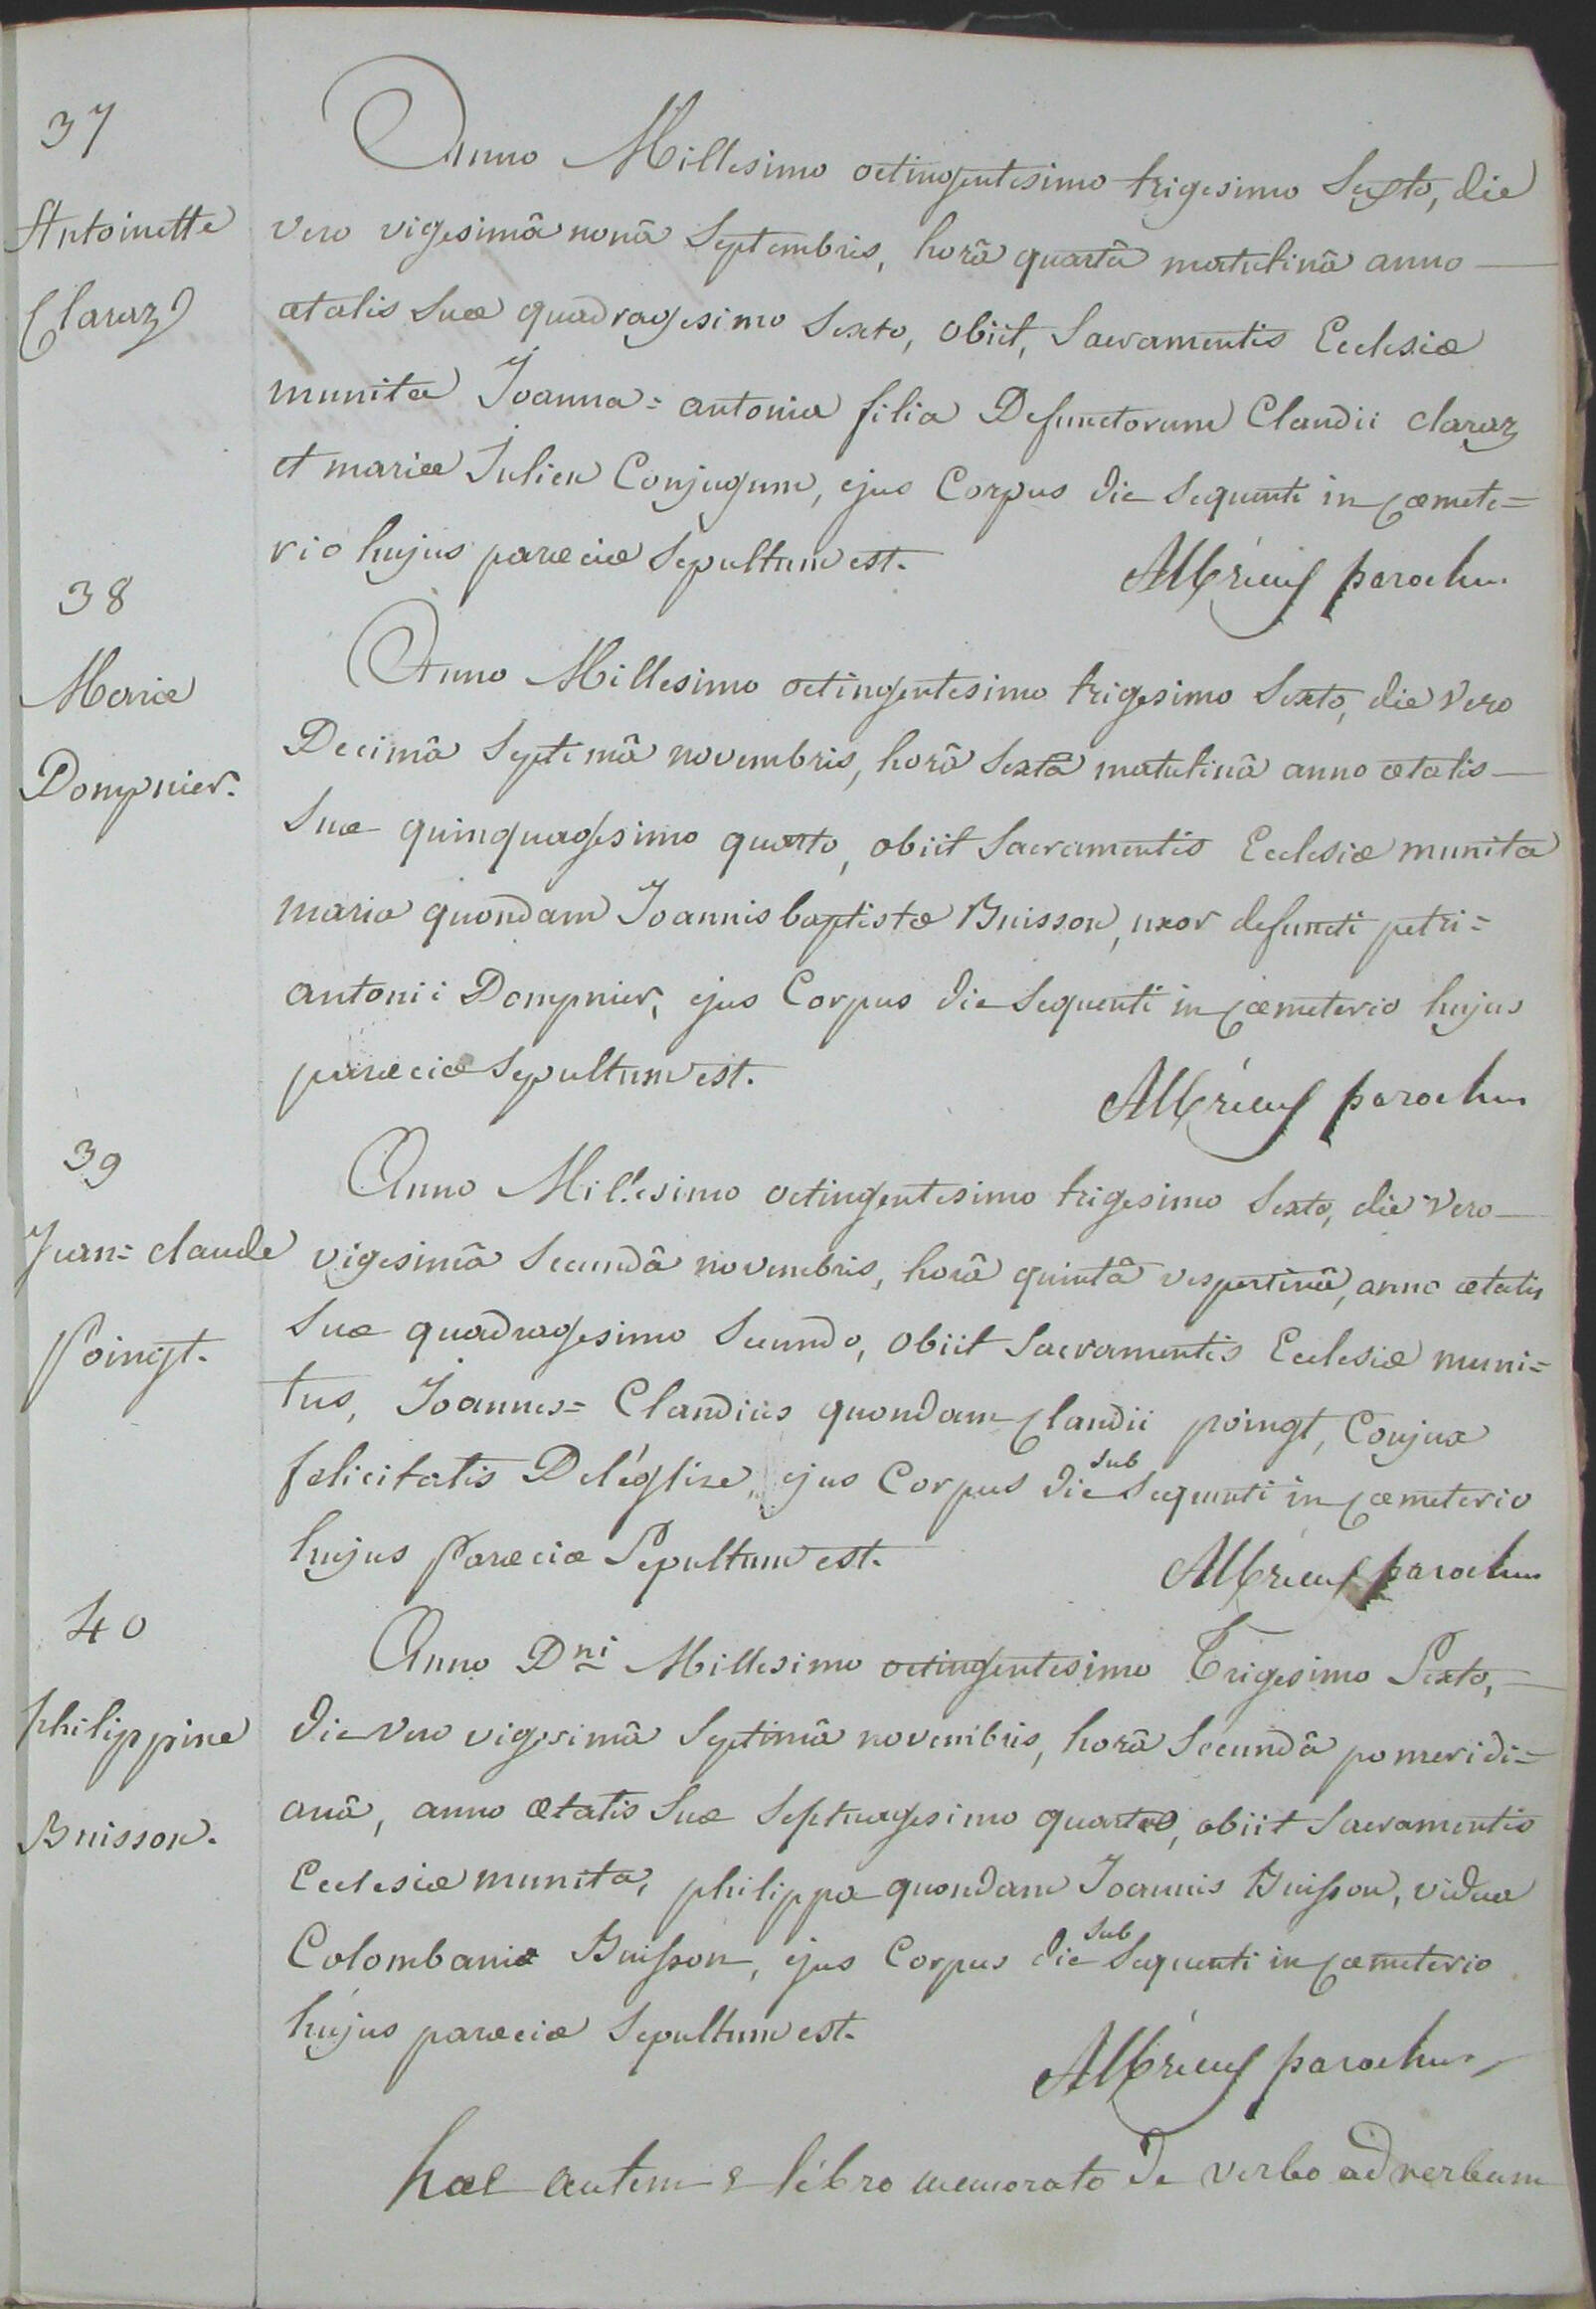 37
Antoinette
Claraz
Anno Millesimo octingentesimo trigesimo Sexto, die
vero vigesimâ nonâ Septembris, horâ quartâ matutinâ anno —
ætatis suæ quadragesimo Sexto, obiit, Sacramentis Ecclesiæ
munita Joanna= antonia filia Defunctorum Claudii claraz
et mariæ Julien Conjugum, ejus Corpus die Sequenti in Cœmete=
rio hujus parœciæ Sepultum est.
parochus
38
Marie
Dompnier.
Anno Millesimo octingentesimo trigesimo Sexto, die Vero
Decimâ Septimâ novembris, horâ Sextâ matutinâ anno ætatis —
Suæ quinquagesimo quarto, obiit Sacramentis Ecclesiæ munita
maria quondam Joannis baptistæ Buisson, uxor defuncti petri=
antonii Dompnier, ejus Corpus die Sequenti in Cœmeterio hujus
parœciæ Sepultum est.
parochus
39
Jean= claude
Poingt.
Anno Millesimo octingentesimo trigesimo Sexto, die Vero —
vigesimâ Secundâ novembris, horâ quintâ vespertinâ, anno ætatis
Suæ quadragesimo Secundo, obiit Sacramentis Ecclesiæ muni=
tus, Joannes= Claudius quondam Claudii poingt, Conjux
felicitatis Deléglise, ejus Corpus die subSequenti in Cœmeterio
hujus Parœciæ Sepultum est.
parochus
40
philippine
Buisson.
Anno Dni Millesimo octingentesimo Trigesimo Sexto, —
die Vero vigesimâ Septimâ novembris, horâ Secundâ pomeridi=
anâ, anno ætatis Suæ Septuagesimo quarto, obiit Sacramentis
Ecclesiæ munita, philippa quondam Joannis Buisson, vidua
Colombani Buisson, ejus Corpus die subSequenti in Cœmeterio
hujus parœciæ Sepultum est.
parochus
hæc autem e libro memorato de verbo ad verbum